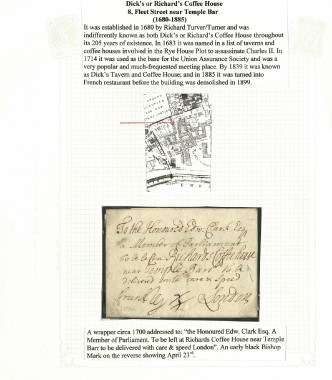 Dick's or Richard's Coffee House
8, Fleet Street near Temple Bar
(1680-1885)
It was established in 1680 by Richard Turver/Turner and was
indifferently known as both Dick's or Richard's Coffee House throughout
its 205 years of existence. In 1683 it was named in a list of taverns and
coffee houses involved in the Rye House Plot to assassinate Charles II. In
1714 it was used as the base for the Union Assurance Society and was a
very popular and much-frequented meeting place. By 1839 it was known
as Dick's Tavern and Coffee House; and in 1885 it was turned into
French restaurant before the building was demolished in 1899.
To the Honoured Edw. Clark Esq
A Member of Parliament
To be left at Richards Coffee house
near Temple Barr to be
delivered with care & speed
London
A wrapper circa 1700 addressed to: "the Honoured Edw. Clark Esq. A
Member of Parliament. To be left at Richards Coffee House near Temple
Barr to be delivered with care & speed London". An early black Bishop
Mark on the reverse showing April 23rd.